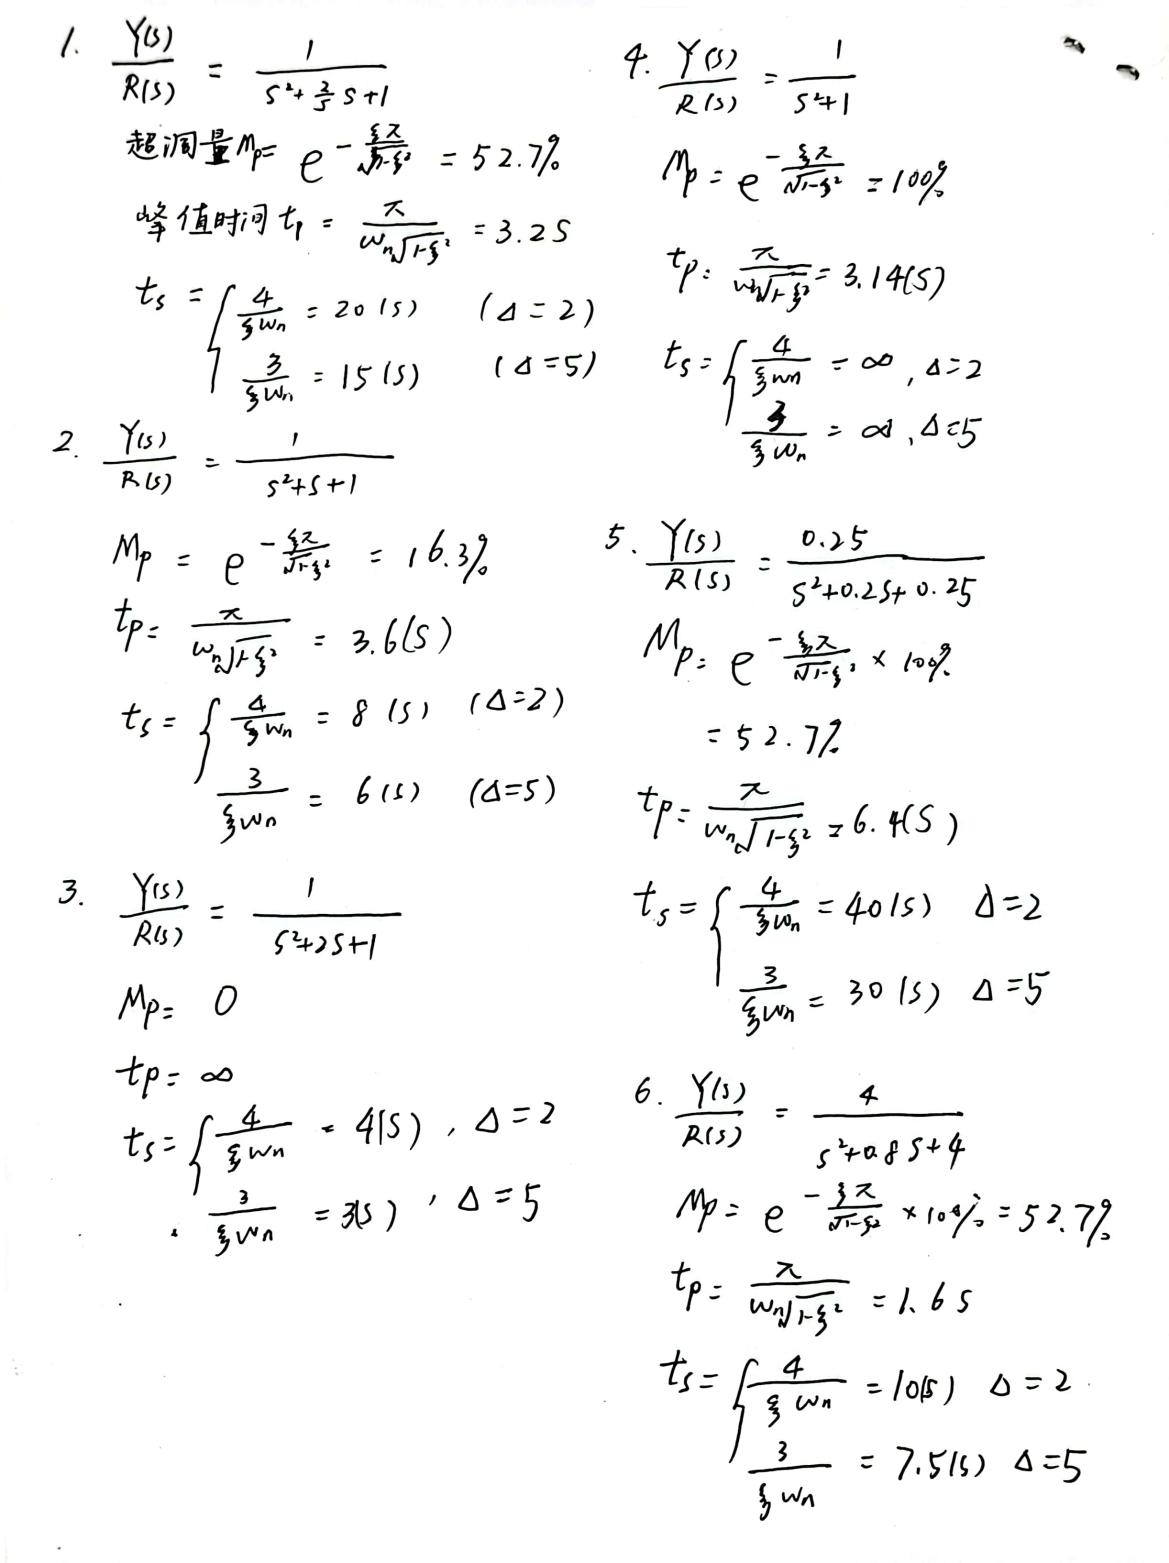 1. Y(s)/R(s) = 1/(s²+2/5 s+1)
超调量Mp= e^(-ξπ/√(1-ξ²)) = 52.7%
峰值时间 tp = π/(ωn√(1-ξ²)) = 3.2S
ts = { 4/(ξωn) = 20(s) (Δ=2)
3/(ξωn) = 15(s) (Δ=5)
2. Y(s)/R(s) = 1/(s²+s+1)
Mp = e^(-ξπ/√(1-ξ²)) = 16.3%
tp= π/(ωn√(1-ξ²)) = 3.6(s)
ts= { 4/(ξωn) = 8(s) (Δ=2)
3/(ξωn) = 6(s) (Δ=5)
3. Y(s)/R(s) = 1/(s²+2s+1)
Mp= 0
tp= ∞
ts= { 4/(ξωn) = 4(s), Δ=2
3/(ξωn) = 3(s), Δ=5
4. Y(s)/R(s) = 1/(s²+1)
Mp = e^(-ξπ/√(1-ξ²)) = 100%
tp= π/(ωn√(1-ξ²)) = 3.14(s)
ts= { 4/(ξωn) = ∞, Δ=2
3/(ξωn) = ∞, Δ=5
5. Y(s)/R(s) = 0.25/(s²+0.2s+0.25)
Mp= e^(-ξπ/√(1-ξ²)) × 100%
= 52.7%
tp= π/(ωn√(1-ξ²)) = 6.4(s)
ts= { 4/(ξωn) = 40(s) Δ=2
3/(ξωn) = 30(s) Δ=5
6. Y(s)/R(s) = 4/(s²+0.8s+4)
Mp= e^(-ξπ/√(1-ξ²)) ×100% = 52.7%
tp= π/(ωn√(1-ξ²)) = 1.6s
ts= { 4/(ξωn) = 10(s) Δ=2
3/(ξωn) = 7.5(s) Δ=5